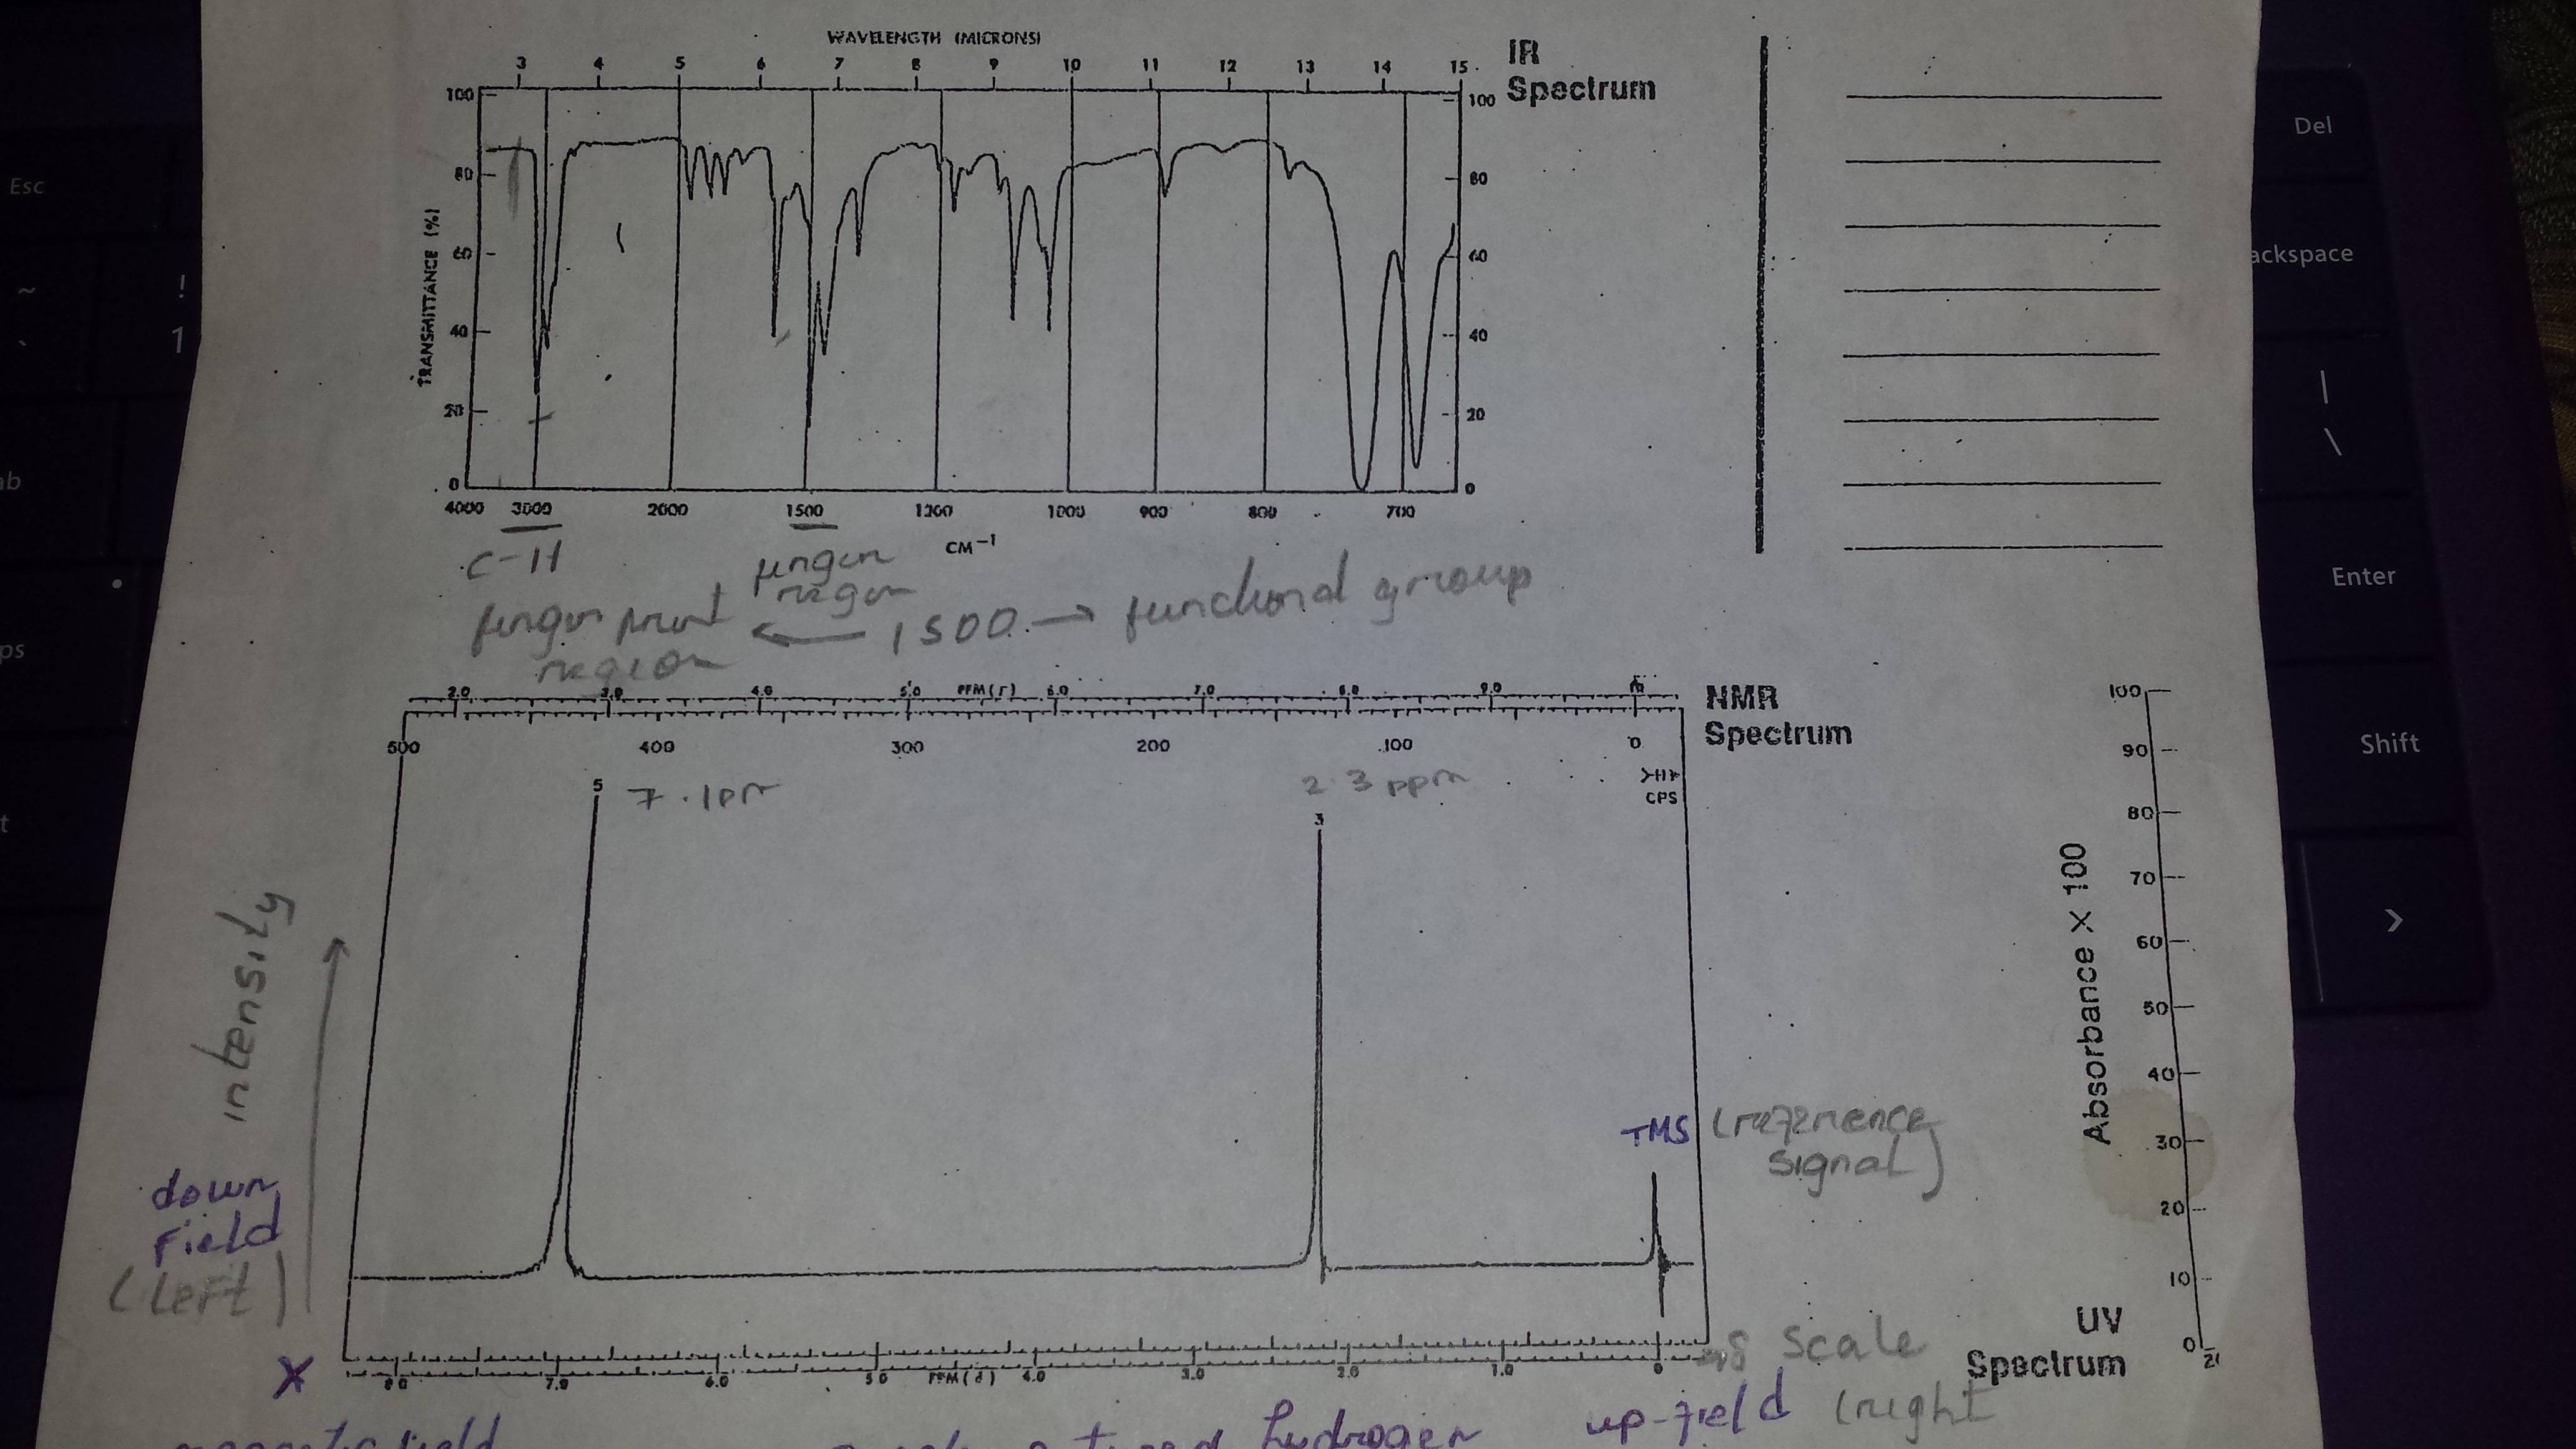 WAVELENGTH (MICRONS)
3 4 5 6 7 8 9 10 11 12 13 14 15
IR
Spectrum
100 100
80 80
60 60
40 40
20 20
0 0
TRANSMITTANCE (%)
4000 3000 2000 1500 1200 1000 900 800 700
CM-1
C-H
region
finger print ← 1500 → functional group
region
2.0 3.0 4.0 5.0 PPM (τ) 6.0 7.0 8.0 9.0 10
NMR
Spectrum
500 400 300 200 100 0
CPS
5 7.1pm
2.3 ppm
3
intensity
TMS (reference
signal)
down
Field
(Left)
8.0 7.0 6.0 5.0 PPM (δ) 4.0 3.0 2.0 1.0 0
δ scale
X
up-field (right
hydrogen
field
100
90
80
70
60
50
40
30
20
10
0
Absorbance X 100
UV
Spectrum
Esc
!
1
~
Del
ackspace
|
\
Enter
Shift
>